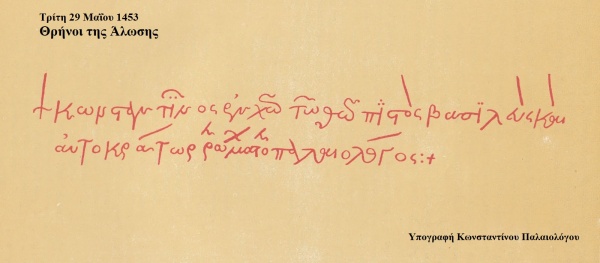 Τρίτη 29 Μαΐου 1453
Θρήνοι της Άλωσης
+ κωνσταντῖνος ἐν χῶ τῶ θῶ πιστὸς βασιλεὺς καὶ
αὐτοκράτωρ ῥωμαίων ὁ παλαιολόγος:+
Υπογραφή Κωνσταντίνου Παλαιολόγου